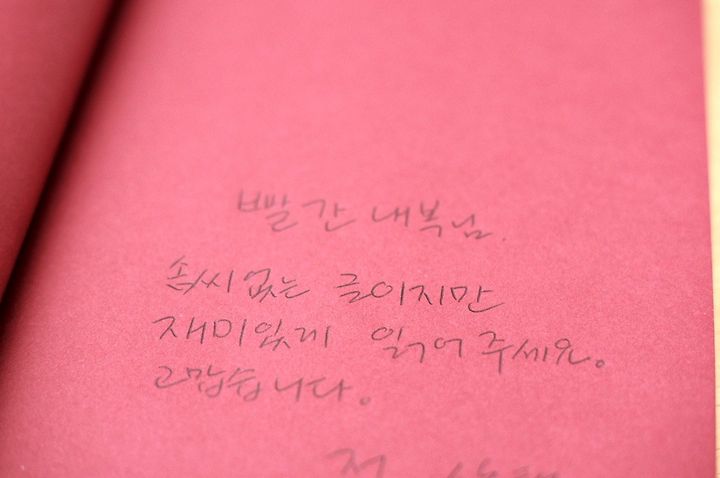 빨간내복님.
솜씨없는 글이지만
재미있게 읽어주세요.
고맙습니다.